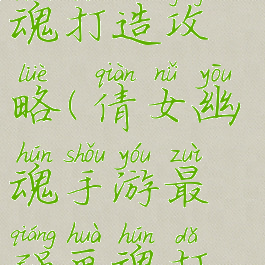 魂打造攻
lüè qiàn nǚ yōu
略(倩女幽
hún shǒu yóu zuì
魂手游最
qiáng huà hún dǎ
强画魂打